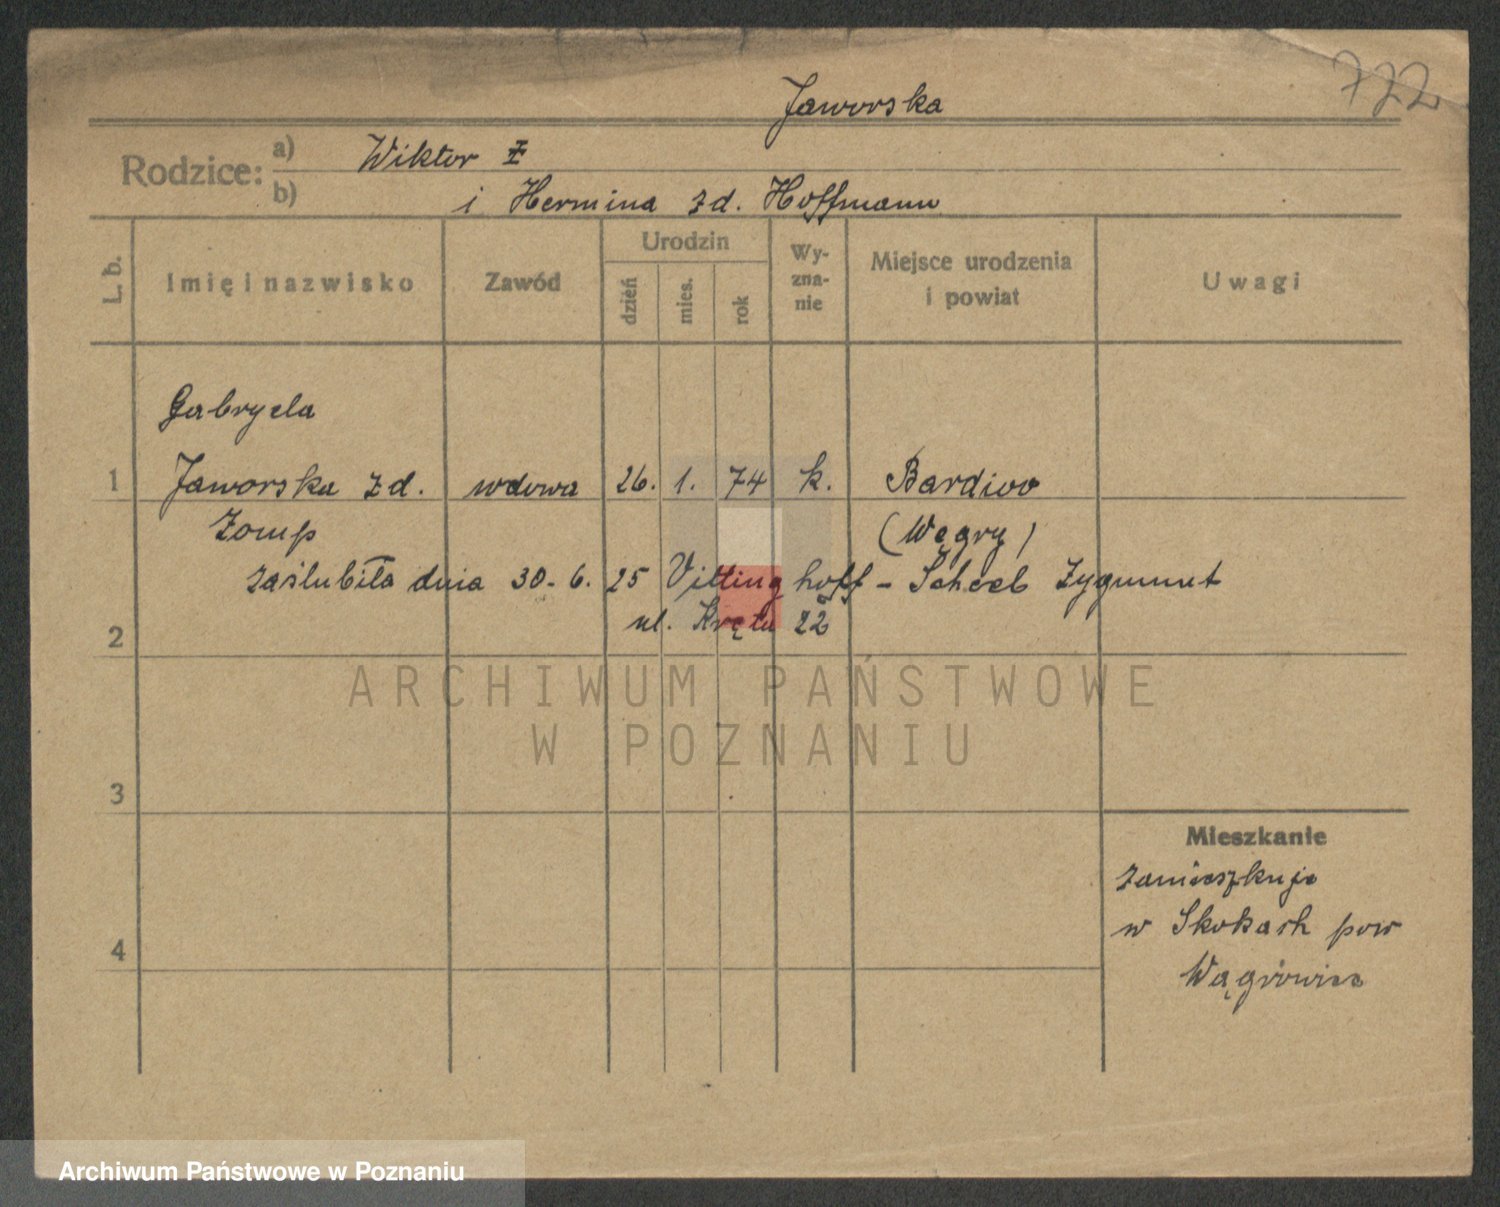 722
Jaworska
Rodzice: a) Wiktor Z
b) i Hermina zd. Hoffmann
L. b. Imię i nazwisko Zawód Urodzin dzień mies. rok Wy-zna-nie Miejsce urodzenia i powiat Uwagi
Gabryela
1 Jaworska zd. wdowa 26. 1. 74 k. Bardivo
Zomp (Węgry)
zaślubiła dnia 30-6. 25 Vittinghoff - Scheel Zygmunt
ul. Kręta 22
2
ARCHIWUM PAŃSTWOWE
W POZNANIU
3
Mieszkanie
zamieszkuje
4 w Skokach pow
Wągrowiec
Archiwum Państwowe w Poznaniu